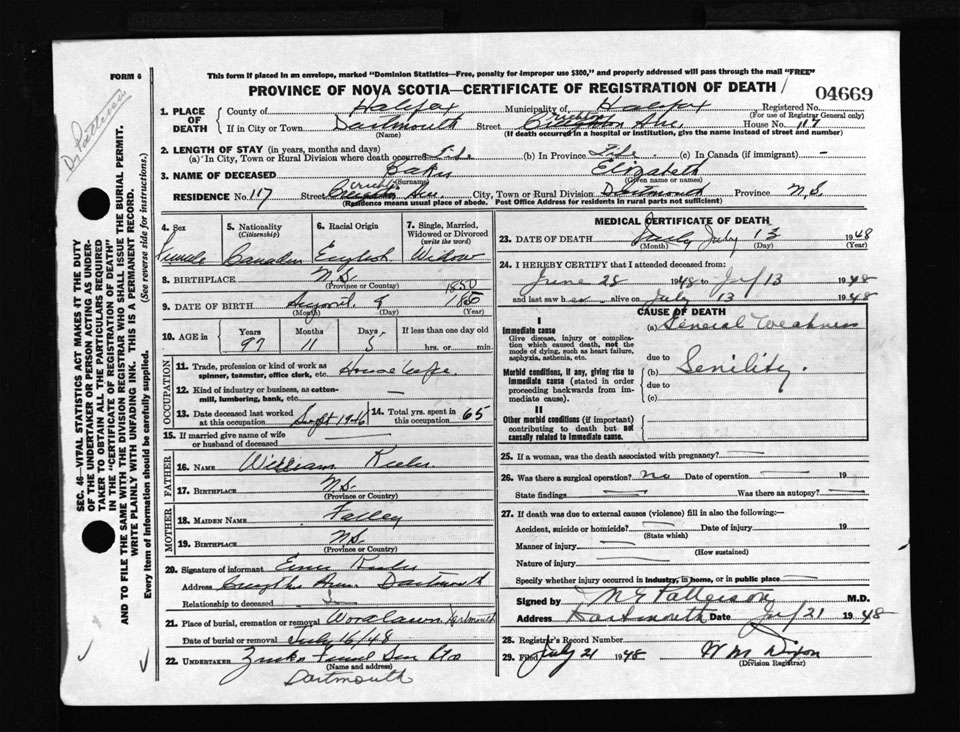 FORM 6
This form if placed in an envelope, marked "Dominion Statistics—Free, penalty for improper use $300," and properly addressed will pass through the mail "FREE"
PROVINCE OF NOVA SCOTIA—CERTIFICATE OF REGISTRATION OF DEATH
04669
Dr Patterson
1. PLACE OF DEATH
County of Halifax Municipality of Halifax Registered No.
(For use of Registrar General only)
If in City or Town Dartmouth Street Ave. House No. 117
(Name) (If death occurred in a hospital or institution, give the name instead of street and number)
2. LENGTH OF STAY (in years, months and days)
(a) In City, Town or Rural Division where death occurred Life (b) In Province Life (c) In Canada (if immigrant) —
3. NAME OF DECEASED Elizabeth
(Surname) (Given name or names)
RESIDENCE No. 117 Street Ave. City, Town or Rural Division Dartmouth Province N.S.
(Residence means usual place of abode. Post Office Address for residents in rural parts not sufficient)
4. Sex Female
5. Nationality (Citizenship) Canadian
6. Racial Origin English
7. Single, Married, Widowed or Divorced (write the word) Widow
8. BIRTHPLACE N.S.
(Province or Country)
1850
9. DATE OF BIRTH August 8 1850
(Month) (Day) (Year)
10. AGE in Years Months Days If less than one day old
97 11 5 hrs. or min.
OCCUPATION
11. Trade, profession or kind of work as spinner, teamster, office clerk, etc. House Wife
12. Kind of industry or business, as cotton-mill, lumbering, bank, etc. —
13. Date deceased last worked at this occupation Sept 1946
14. Total yrs. spent in this occupation 65
15. If married give name of wife or husband of deceased
FATHER
16. NAME William
17. BIRTHPLACE N.S.
(Province or Country)
MOTHER
18. MAIDEN NAME Falley
19. BIRTHPLACE N.S.
(Province or Country)
20. Signature of informant
Address Dartmouth
Relationship to deceased
21. Place of burial, cremation or removal Woodlawn Dartmouth
Date of burial or removal July 16/48
22. UNDERTAKER
(Name and address)
Dartmouth
MEDICAL CERTIFICATE OF DEATH
23. DATE OF DEATH July 13 1948
(Month) (Day) (Year)
24. I HEREBY CERTIFY that I attended deceased from:
June 28 1948 to July 13 1948
and last saw her alive on July 13 1948
CAUSE OF DEATH
I
Immediate cause (a) General Weakness
Give disease, injury or complication which caused death, not the mode of dying, such as heart failure, asphyxia, asthenia, etc.
due to
Morbid conditions, if any, giving rise to immediate cause (stated in order proceeding backwards from immediate cause).
(b) Senility.
due to
(c)
II
Other morbid conditions (if important) contributing to death but not causally related to immediate cause.
25. If a woman, was the death associated with pregnancy? —
26. Was there a surgical operation? no Date of operation — 19
State findings — Was there an autopsy? —
27. If death was due to external causes (violence) fill in also the following:—
Accident, suicide or homicide? — Date of injury 19
(State which)
Manner of injury —
(How sustained)
Nature of injury —
Specify whether injury occurred in industry, in home, or in public place —
Signed by Patterson M.D.
Address Dartmouth Date July 21 1948
28. Registrar's Record Number
29. Filed July 21 1948 W M Dixon
(Division Registrar)
SEC. 46—VITAL STATISTICS ACT MAKES IT THE DUTY
OF THE UNDERTAKER OR PERSON ACTING AS UNDER-
TAKER TO OBTAIN ALL THE PARTICULARS REQUIRED
IN THE "CERTIFICATE OF REGISTRATION OF DEATH"
AND TO FILE THE SAME WITH THE DIVISION REGISTRAR WHO SHALL ISSUE THE BURIAL PERMIT.
WRITE PLAINLY WITH UNFADING INK. THIS IS A PERMANENT RECORD.
Every item of information should be carefully supplied. (See reverse side for instructions.)